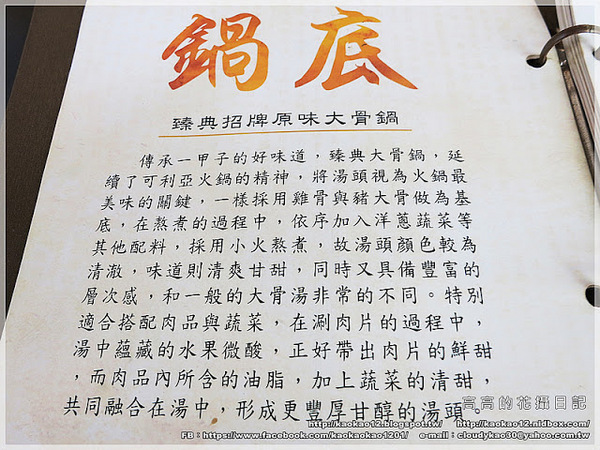 鍋底
臻典招牌原味大骨鍋
傳承一甲子的好味道，臻典大骨鍋，延
續了可利亞火鍋的精神，將湯頭視為火鍋最
美味的關鍵，一樣採用雞骨與豬大骨做為基
底，在熬煮的過程中，依序加入洋蔥蔬菜等
其他配料，採用小火熬煮，故湯頭顏色較為
清澈，味道則清爽甘甜，同時又具備豐富的
層次感，和一般的大骨湯非常的不同。特別
適合搭配肉品與蔬菜，在涮肉片的過程中，
湯中蘊藏的水果微酸，正好帶出肉片的鮮甜
，而肉品內所含的油脂，加上蔬菜的清甜，
共同融合在湯中，形成更豐厚甘醇的湯頭。
高高的花攝日記
http://kaokao12.blogspot.tw/ http://kaokao12.nidbox.com/
FB：https://www.facebook.com/kaokaokao1201/ e-mail：cloudykao30@yahoo.com.tw